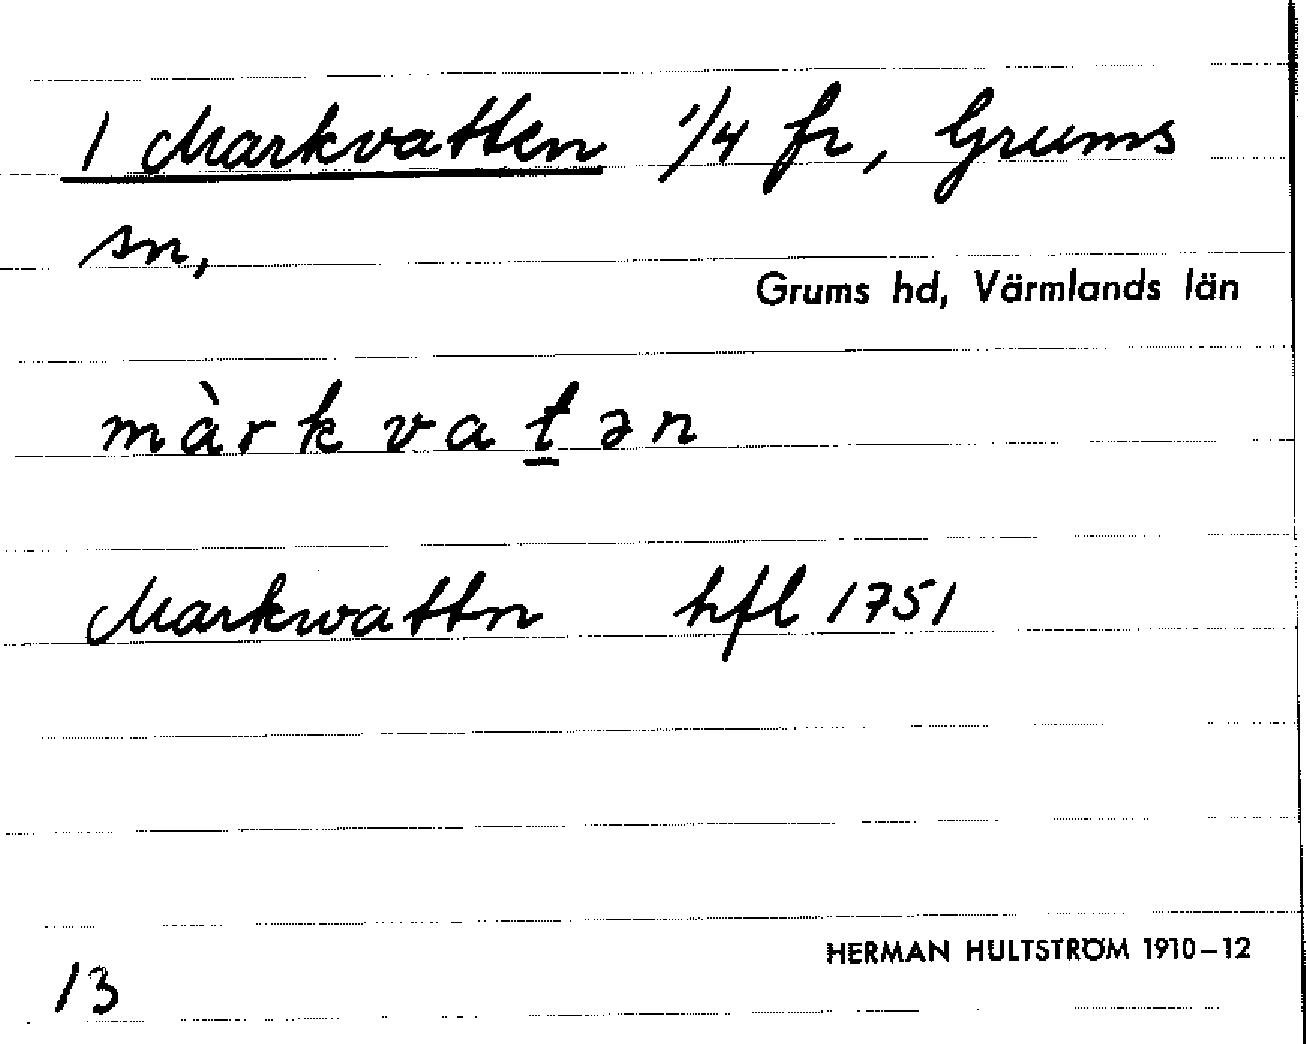 1 Markvatten 1/4 fr, Grums
sn,
Grums hd, Värmlands län
màrkvat̲ən
Markwattn hfl 1751
HERMAN HULTSTRÖM 1910–12
13